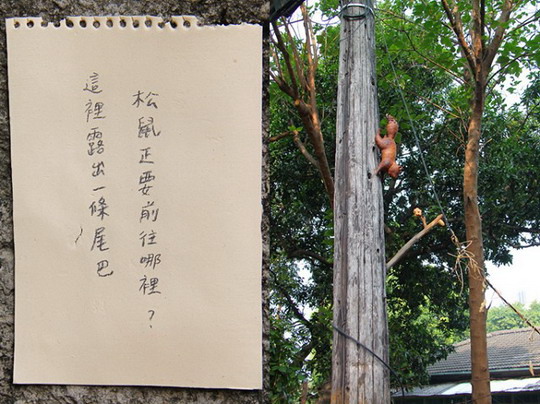 松鼠正要前往哪裡？
這裡露出一條尾巴